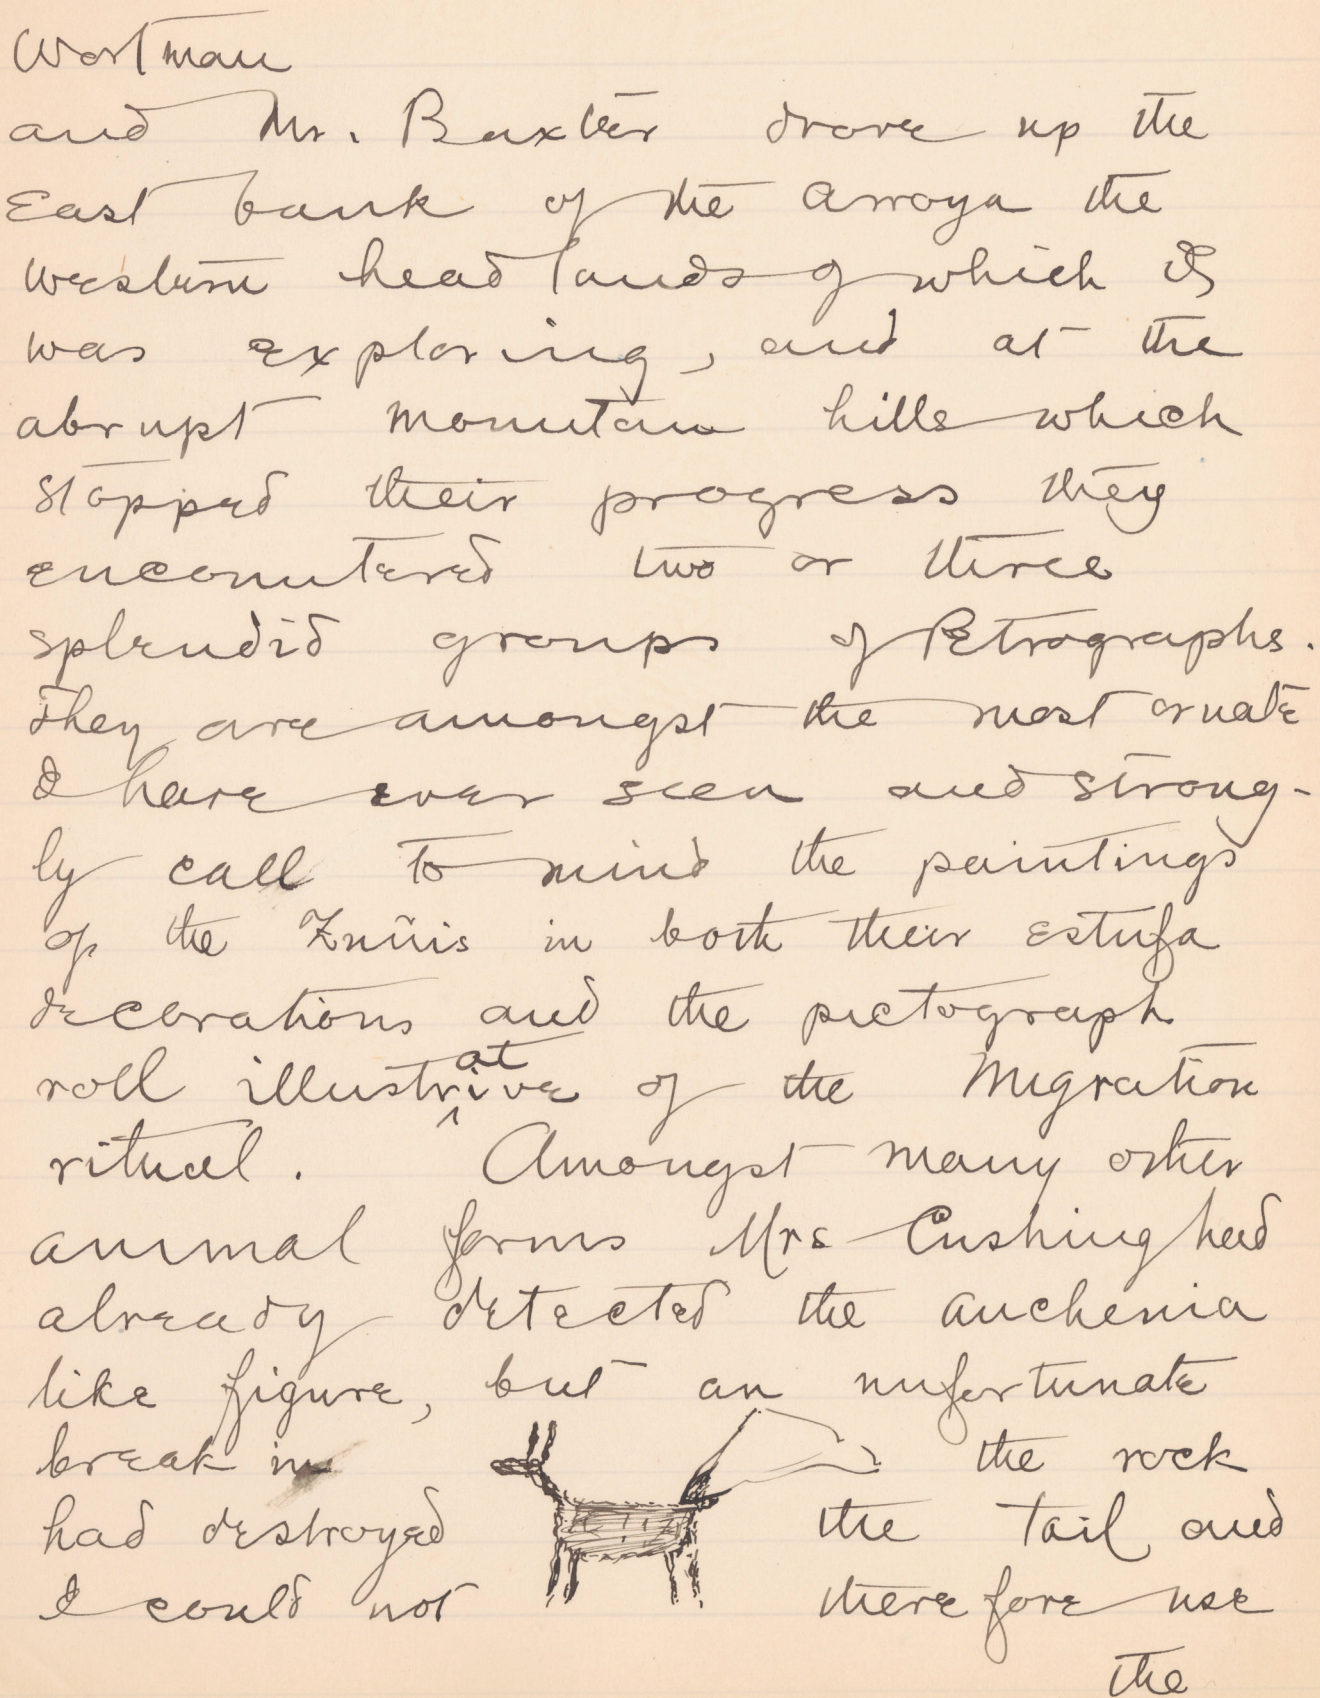 Wortman
and Mr. Baxter drove up the
East bank of the Arroya the
western head lands of which I
was exploring, and at the
abrupt mountain hills which
stopped their progress they
encountered two or three
splendid groups of Petrographs.
They are amongst the most ornate
I have ever seen and strong-
ly call to mind the paintings
of the Zuñis in both their estufa
decorations and the pictograph
roll illustrative of the Migration
ritual. Amongst many other
animal forms Mrs Cushing had
already detected the auchenia
like figure, but an unfortunate
break in the rock
had destroyed the tail and
I could not therefore use
the